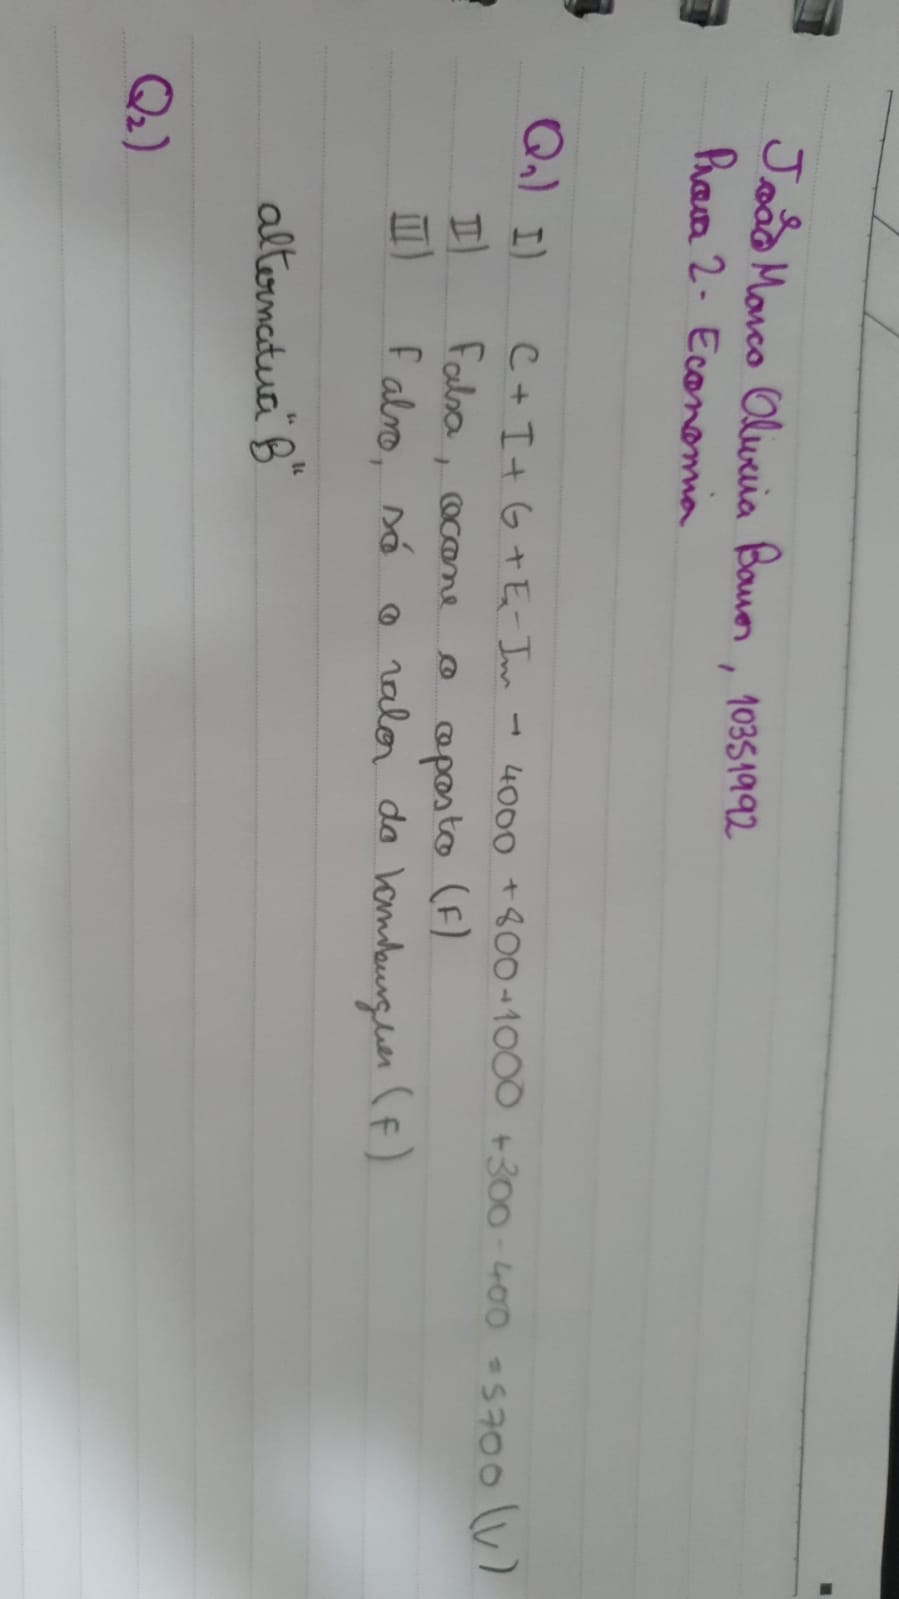 João Marco Oliveira Barros, 10351992
Prova 2 - Economia
Q1) I) C + I + G + Ex - Im → 4000 + 800 + 1000 + 300 - 400 = 5700 (V)
II) Falsa, ocorre o oposto (F)
III) Falso, só o valor do hamburguer (F)
alternativa "B"
Q2)